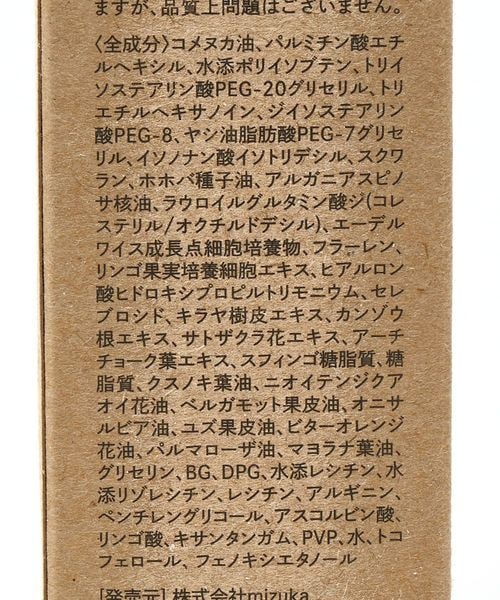 ますが、品質上問題はございません。
〈全成分〉コメヌカ油、パルミチン酸エチ
ルヘキシル、水添ポリイソブテン、トリイ
ソステアリン酸PEG-20グリセリル、トリ
エチルヘキサノイン、ジイソステアリン
酸PEG-8、ヤシ油脂肪酸PEG-7グリセ
リル、イソノナン酸イソトリデシル、スクワ
ラン、ホホバ種子油、アルガニアスピノ
サ核油、ラウロイルグルタミン酸ジ(コレ
ステリル/オクチルドデシル)、エーデル
ワイス成長点細胞培養物、フラーレン、
リンゴ果実培養細胞エキス、ヒアルロン
酸ヒドロキシプロピルトリモニウム、セレ
ブロシド、キラヤ樹皮エキス、カンゾウ
根エキス、サトザクラ花エキス、アーチ
チョーク葉エキス、スフィンゴ糖脂質、糖
脂質、クスノキ葉油、ニオイテンジクア
オイ花油、ベルガモット果皮油、オニサ
ルビア油、ユズ果皮油、ビターオレンジ
花油、パルマローザ油、マヨラナ葉油、
グリセリン、BG、DPG、水添レシチン、水
添リゾレシチン、レシチン、アルギニン、
ペンチレングリコール、アスコルビン酸、
リンゴ酸、キサンタンガム、PVP、水、トコ
フェロール、フェノキシエタノール
[発売元] 株式会社mizuka